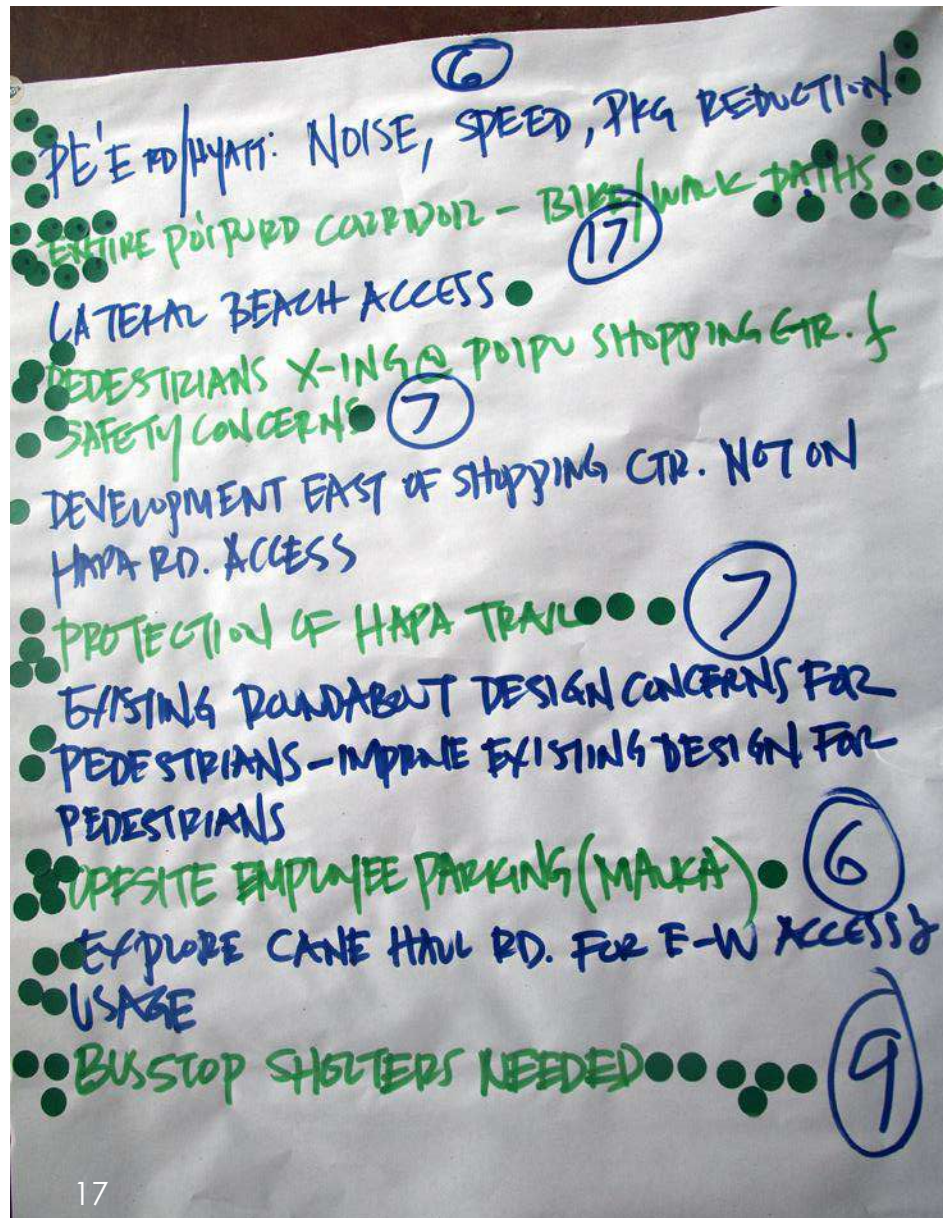 6
PE'E RD/HYATT: NOISE, SPEED, PKG REDUCTION
ENTIRE POIPU RD CORRIDOR - BIKE/WALK PATHS
17
LATERAL BEACH ACCESS
PEDESTRIANS X-ING @ POIPU SHOPPING CTR. &
SAFETY CONCERNS 7
DEVELOPMENT EAST OF SHOPPING CTR. NOT ON
HAPA RD. ACCESS
PROTECTION OF HAPA TRAIL 7
EXISTING ROUNDABOUT DESIGN CONCERNS FOR
PEDESTRIANS - IMPROVE EXISTING DESIGN FOR
PEDESTRIANS
OFFSITE EMPLOYEE PARKING (MAUKA) 6
EXPLORE CANE HAUL RD. FOR E-W ACCESS &
USAGE
BUS STOP SHELTERS NEEDED 9
17